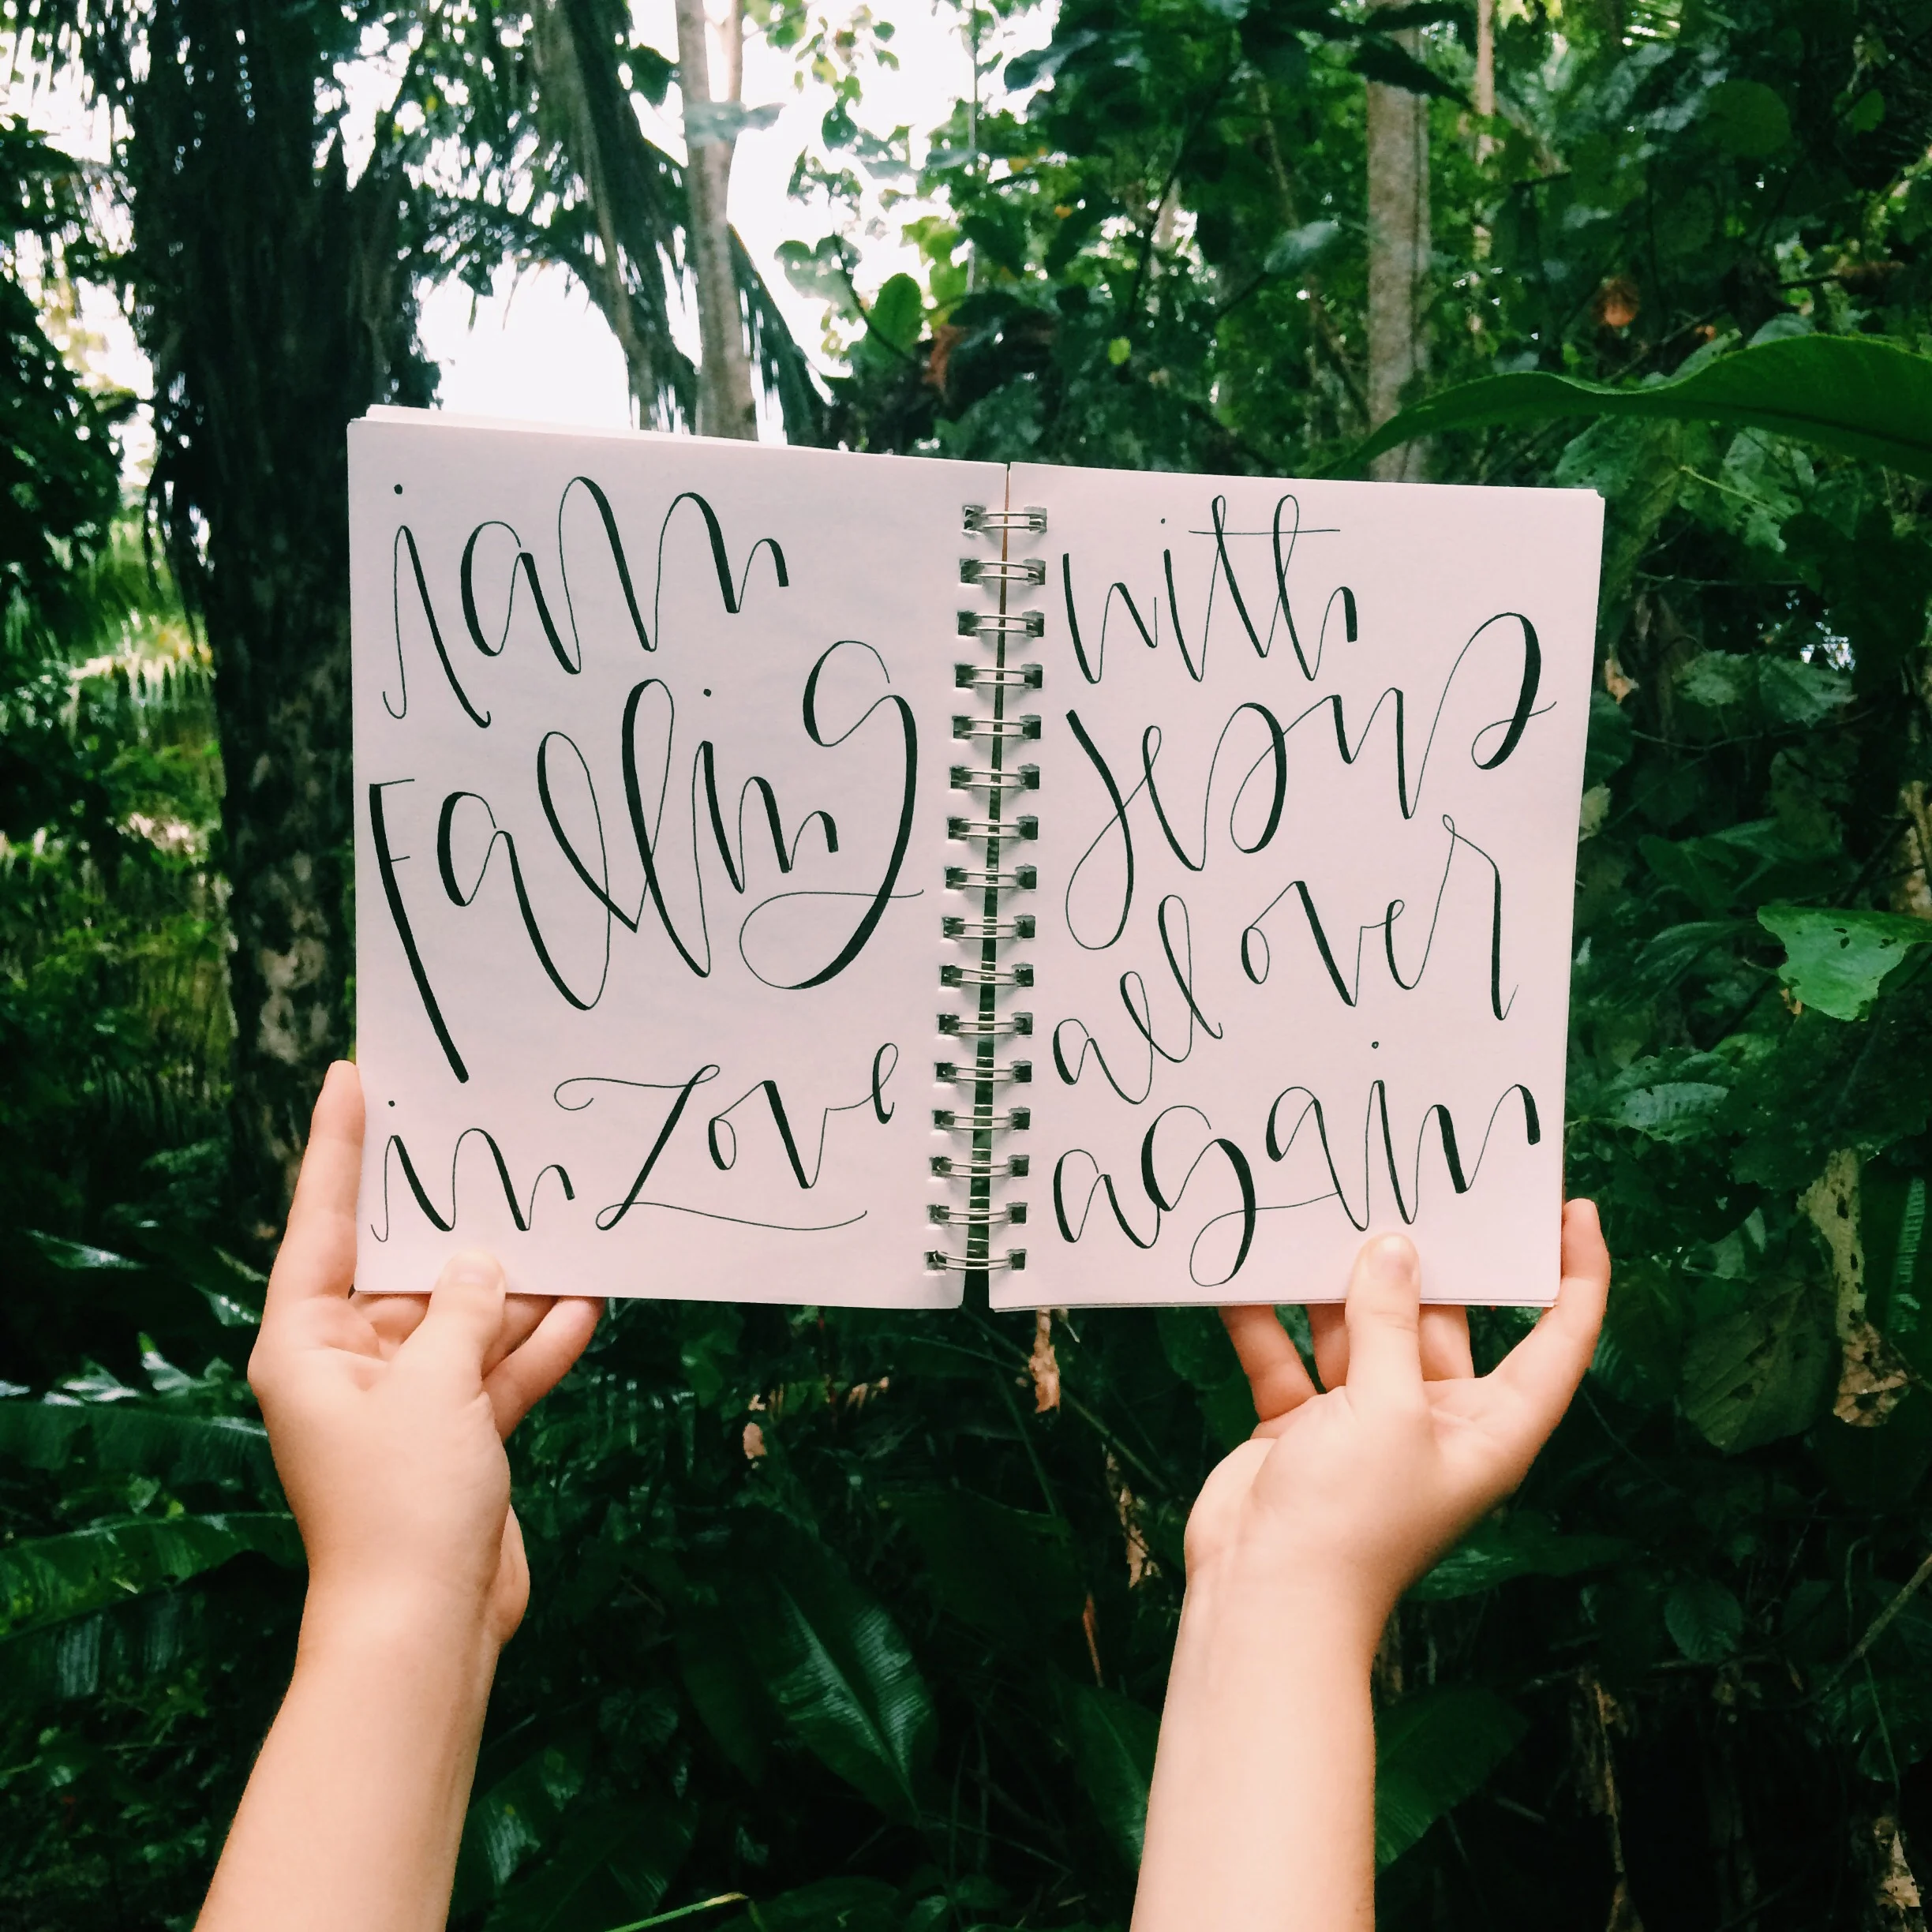 i am
Falling
in Love
with
Jesus
all over
again